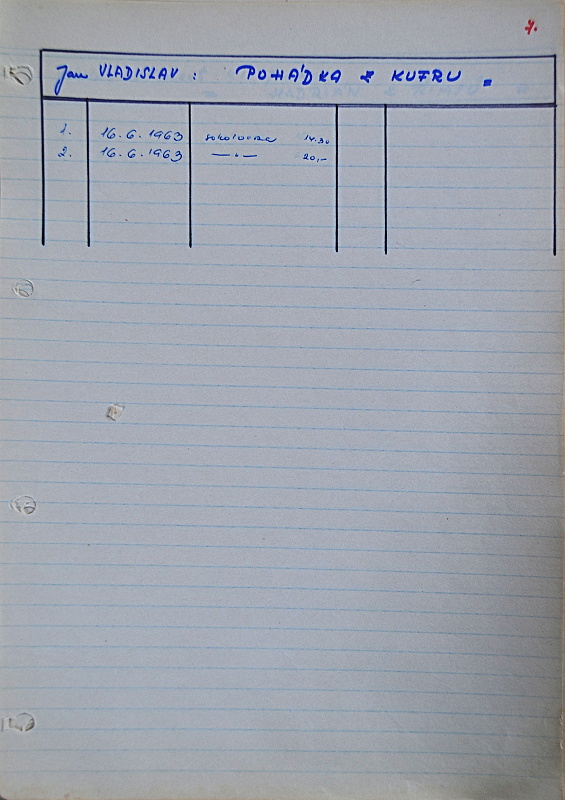 7.
Jan VLADISLAV : POHÁDKA Z KUFRU =
1. 16.6.1963 sokolovna 14.30
2. 16.6.1963 —"— 20,-